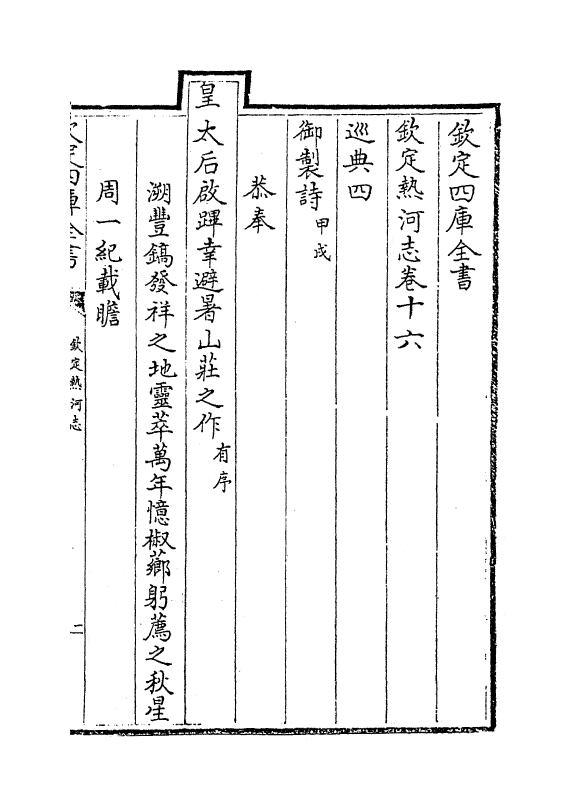 欽定四庫全書
欽定熱河志卷十六
巡典四
御製詩甲戌
恭奉
皇太后啟蹕幸避暑山莊之作有序
溯豐鎬發祥之地靈萃萬年憶椒薌躬薦之秋星
周一紀載瞻
欽定四庫全書
欽定熱河志